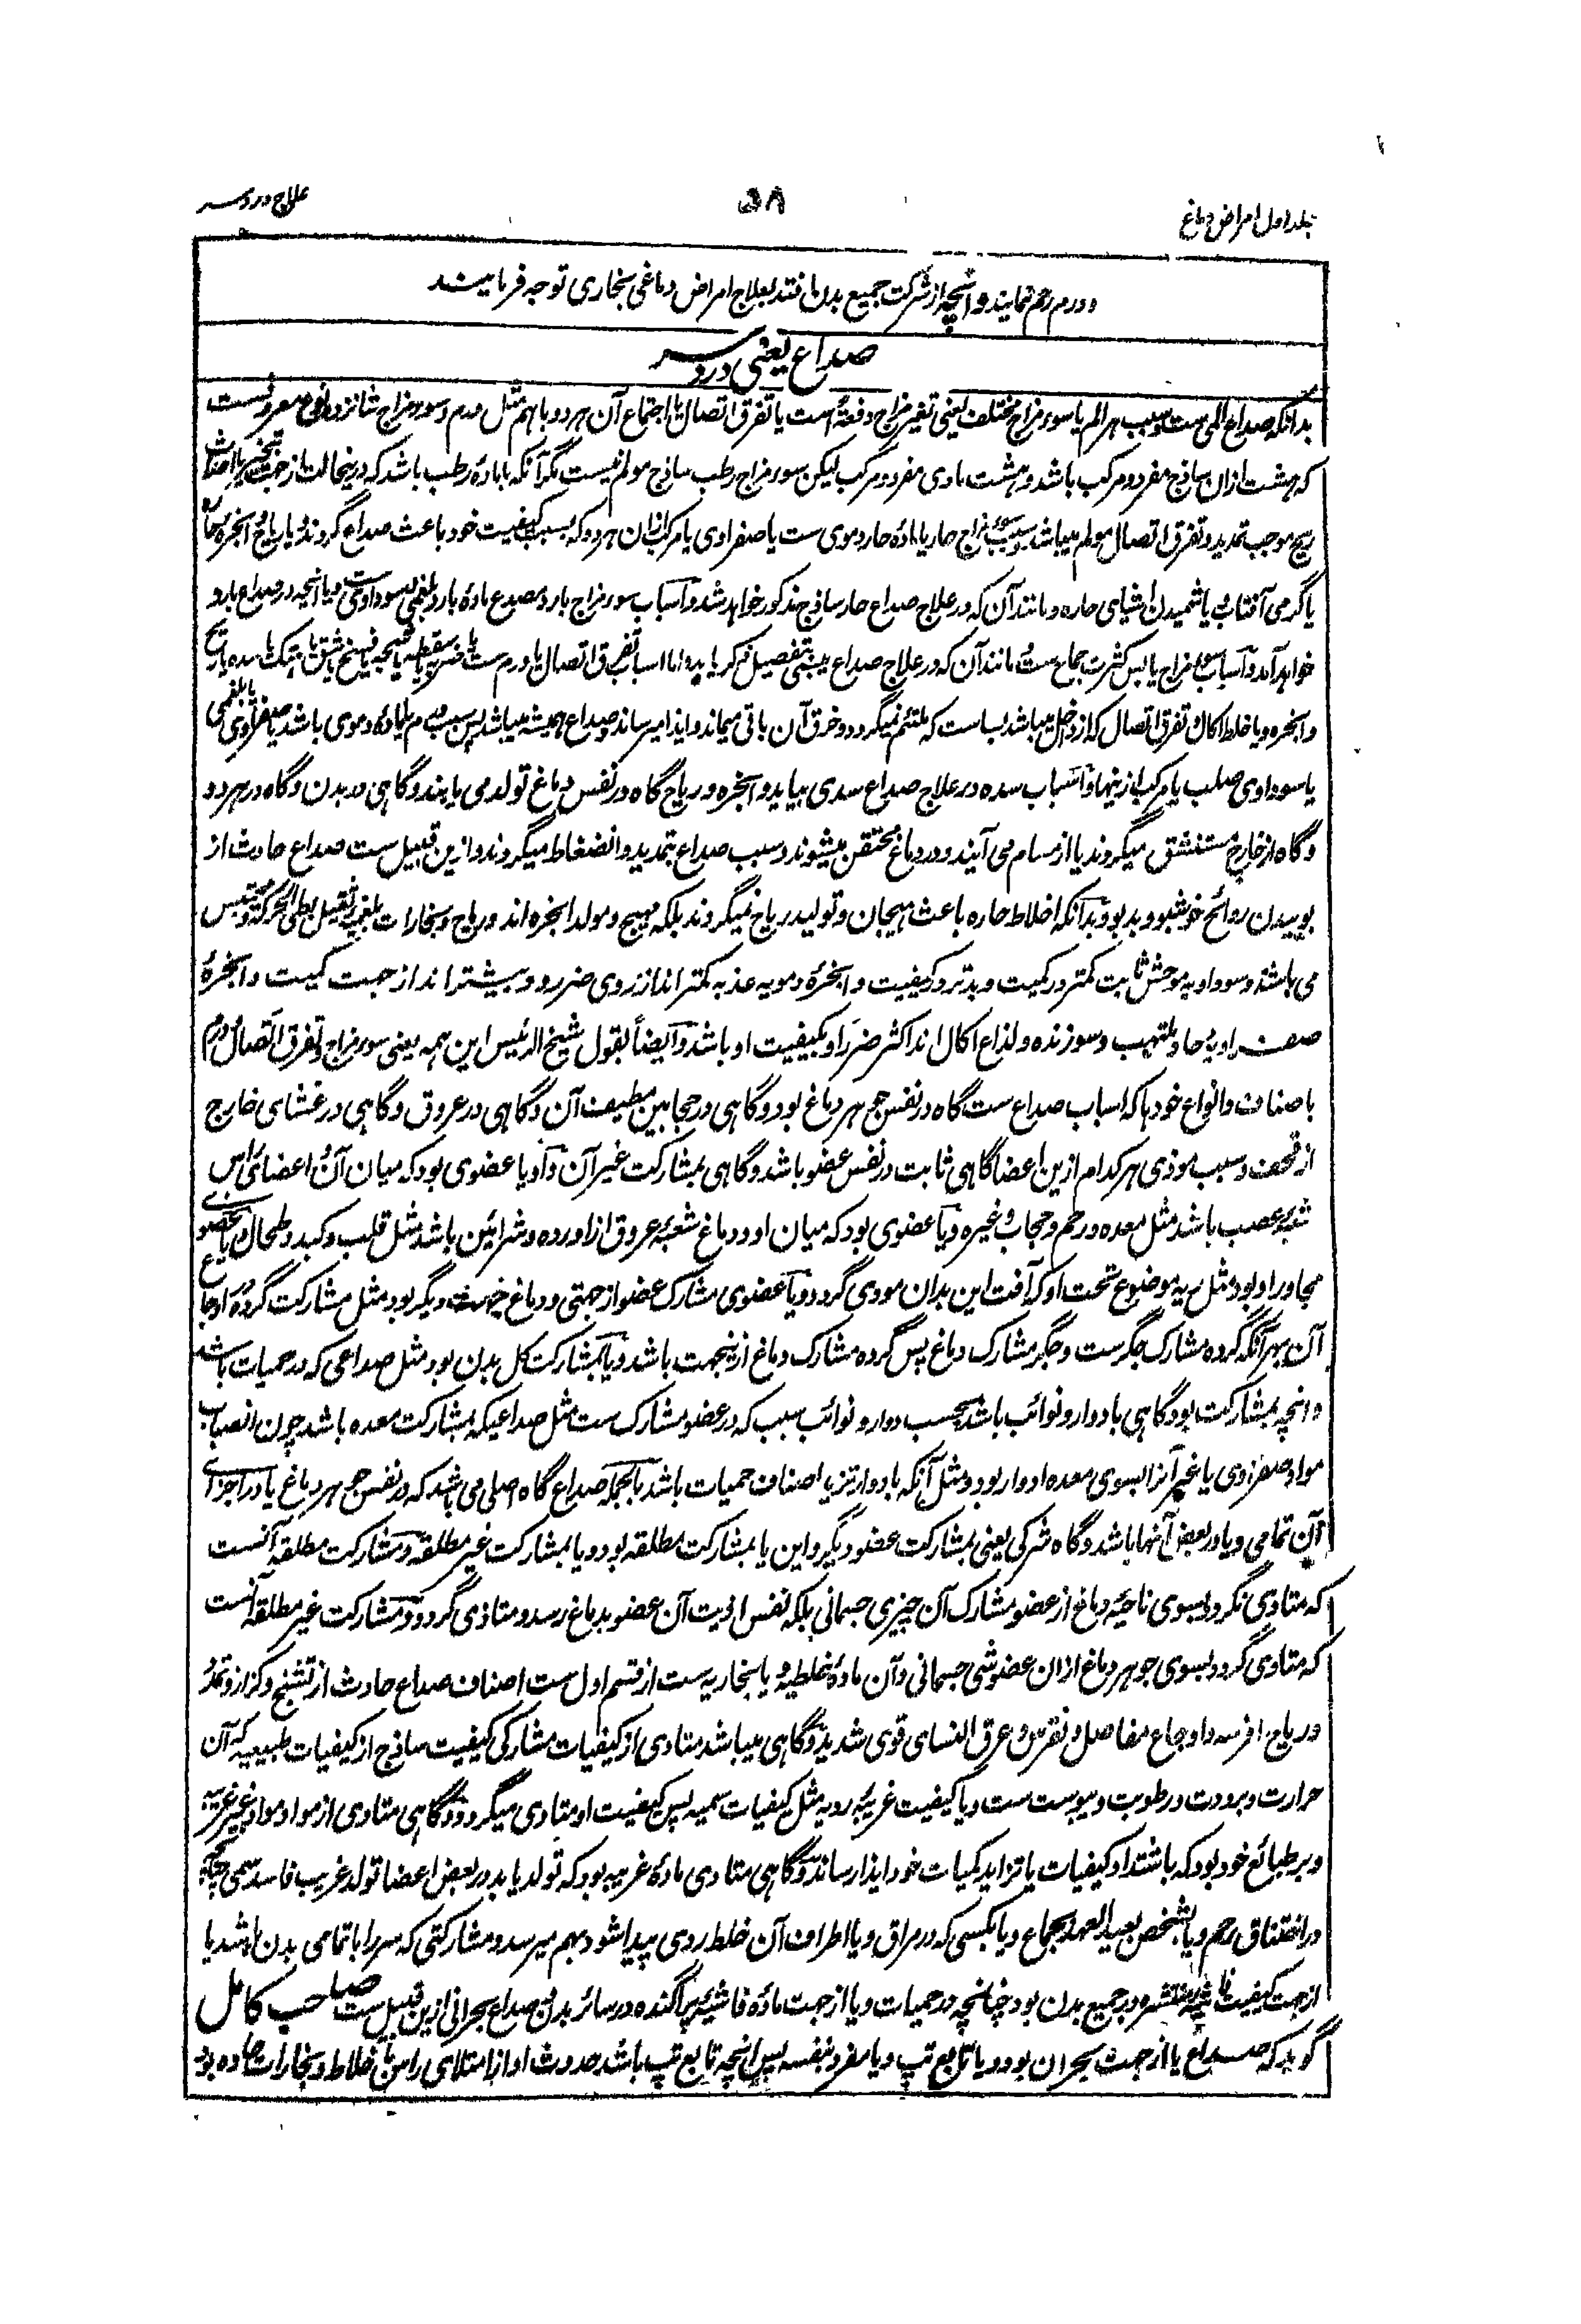 جلد اول امراض دماغ
۵۸
علاج درد سر
و ورم رحم نمایند و آنچه از شرکت جمیع بدن افتد بعلاج امراض دماغی بخاری توجه فرمایند
صداع یعنی درد سر
بدانکه صداع المی ست و سبب هر الم یا سوء مزاج مختلف یعنی تغیر مزاج دفعةً است یا تفرق اتصال یا اجتماع آن هر دو باهم مثل ورم و سوء مزاج شانزده نوع معروفست
که هشت ازان ساذج مفرد و مرکب باشد و هشت مادی مفرد و مرکب لیکن سوء مزاج رطب ساذج مولم نیست مگر آنکه با مادهٔ رطب باشد که درینحالت از جهت تبخیر یا احداث
ریح موجب تمدید و تفرق اتصال مولم میباشد و سبب سوء مزاج حار یا مادهٔ حار دموی ست یا صفراوی یا مرکب ازان هر دو که بسبب کیفیت خود باعث صداع گردند یا ریاح و ابخرهٔ حاره
یا گرمی آفتاب یا شمیدن اشیای حاره و مانند آن که در علاج صداع حار ساذج مذکور خواهد شد و اسباب سوء مزاج بارد مصدع مادهٔ بارد بلغمی و سوداوی ست و یا آنچه در صداع بارد
خواهد آمد و اسباب سوء مزاج یابس کثرت جماع ست و مانند آن که در علاج صداع یبسی بتفصیل ذکر یابد و اما اسباب تفرق اتصال یا ورم ست یا ضربه یا سقطه یا
و ابخره و یا خلط اکال و تفرق اتصال که از داخل میباشد بسا است که ملتئم نمیگردد و خرق آن باقی میماند و ایذا میرساند و صداع همیشه میباشد پس سبب ورم یا مادهٔ دموی باشد یا صفراوی یا بلغمی
یا سوداوی صلب یا مرکب ازینها و اسباب سده در علاج صداع سدی بیاید و ابخره و ریاح گاه در نفس دماغ تولد می یابند و گاهی در بدن و گاه در هر دو
و گاه از خارج مستنشق میگردند یا از مسام می آیند و در دماغ محتقن میشوند و سبب صداع بتمدید و انضغاط میگردند و ازین قبیل ست صداع حادث از
بوییدن روائح خوشبو و بدبو و بدانکه اخلاط حاره باعث هیجان و تولید ریاح نمیگردند بلکه مهیج و مولد ابخره اند و ریاح و بخارات بلغمیه ثقیل بطی الحرکة و محتبس
می باشند و سوداویه موحش ثابت کمتر در کمیت و بدتر در کیفیت و ابخرهٔ دمویه عذبه کمتر اند از روی ضرر و بیشتر اند از جهت کمیت و ابخرهٔ
صفراویه حاد ملتهب و سوزنده و لذاع اکال اند اکثر ضرر او بکیفیت او باشد و ایضاً بقول شیخ الرئیس این همه یعنی سوء مزاج و تفرق اتصال و ورم
با صناف و انواع خودها که اسباب صداع ست گاه در نفس جوهر دماغ بود و گاهی در حجابین مطیفه آن و گاهی در عروق و گاهی در غشای خارج
از قحف و سبب موذی هر کدام ازین اعضا گاهی ثابت در نفس عضو باشد و گاهی بمشارکت غیر آن و آن یا عضوی بود که میان آن و اعضای راس
شعبه عصب باشد مثل معده و رحم و حجاب و غیره و یا عضوی بود که میان او و دماغ شعبهٔ عروق از اورده و شرائین باشد مثل قلب و کبد و طحال و یا عضوی
مجاور او بود مثل ریه موضوع تحت او که آفت این بدان مودی گردد و یا عضوی مشارک عضو از جهتی و دماغ از جهت دیگر بود مثل مشارکت گرده در اوجاع
آن بهر آنکه گرده مشارک جگر ست و جگر مشارک دماغ پس گرده مشارک دماغ ازینجهت باشد و یا بمشارکت کل بدن بود مثل صداعی که در حمیات باشد
و آنچه بمشارکت بود گاهی با دوار و نوائب باشد بحسب ادوار و نوائب سبب که در عضو مشارک ست مثل صداعیکه بمشارکت معده باشد چون انصباب
مواد صفراوی یا غیر آنرا بسوی معده ادوار بود و مثل آنکه با دوار تزید اصناف حمیات باشد بالجمله صداع گاه اصلی می باشد که در نفس جوهر دماغ یا در اجزای
آن تمامی و یا در بعض آنها باشد و گاه شرکی یعنی بمشارکت عضو دیگر و این یا بمشارکت مطلقه بود و یا بمشارکت غیر مطلقه و مشارکت مطلقه آنست
که متادی نگردد بسوی ناحیهٔ دماغ از عضو مشارک آن چیزی جسمانی بلکه نفس اذیت آن عضو بدماغ رسد و متاذی گردد و مشارکت غیر مطلقه آنست
که متادی گردد بسوی جوهر دماغ ازان عضو شی جسمانی و آن مادهٔ خلطیه و یا بخاریه ست از قسم اول ست اصناف صداع حادث از تشنج و کزاز و تمدد
و ریاح افرسه و اوجاع مفاصل و نقرس و عرق النسای قوی شدید و گاهی میباشد متادی از کیفیات مشارکی کیفیت ساذج از کیفیات طبیعیه که آن
حرارت و برودت و رطوبت و یبوست ست و یا کیفیت غریبه ردیه مثل کیفیات سمیه پس کیفیت او متادی میگردد و گاهی متادی از مواد مواد غیر غریبه
و بر طبائع خود بود که باشتداد کیفیات یا تزاید کمیات خود ایذا رساند و گاهی متادی مادهٔ غریبه بود که تولد یابد در بعض اعضا تولد غریب فاسد سمی چنانچه
در اختناق رحم و یا بشخص بعید العهد بجماع و یا بکسی که در مراق و یا اطراف آن خلط ردی پیدا شود بهم میرسد و مشارکتی که سر را با تمامی بدن باشد یا
از جهت کیفیت فاشیه منتشره در جمیع بدن بود چنانچه در حمیات و یا از جهت مادهٔ فاشیه پراگنده در سائر بدن و صداع بحرانی ازین قبیل ست صاحب کامل
گوید که صداع یا از جهت بحران بود و یا تابع تپ و یا مفرد بنفسه پس آنچه تابع تپ باشد حدوث او از امتلای راس از اخلاط و بخارات حاده بود